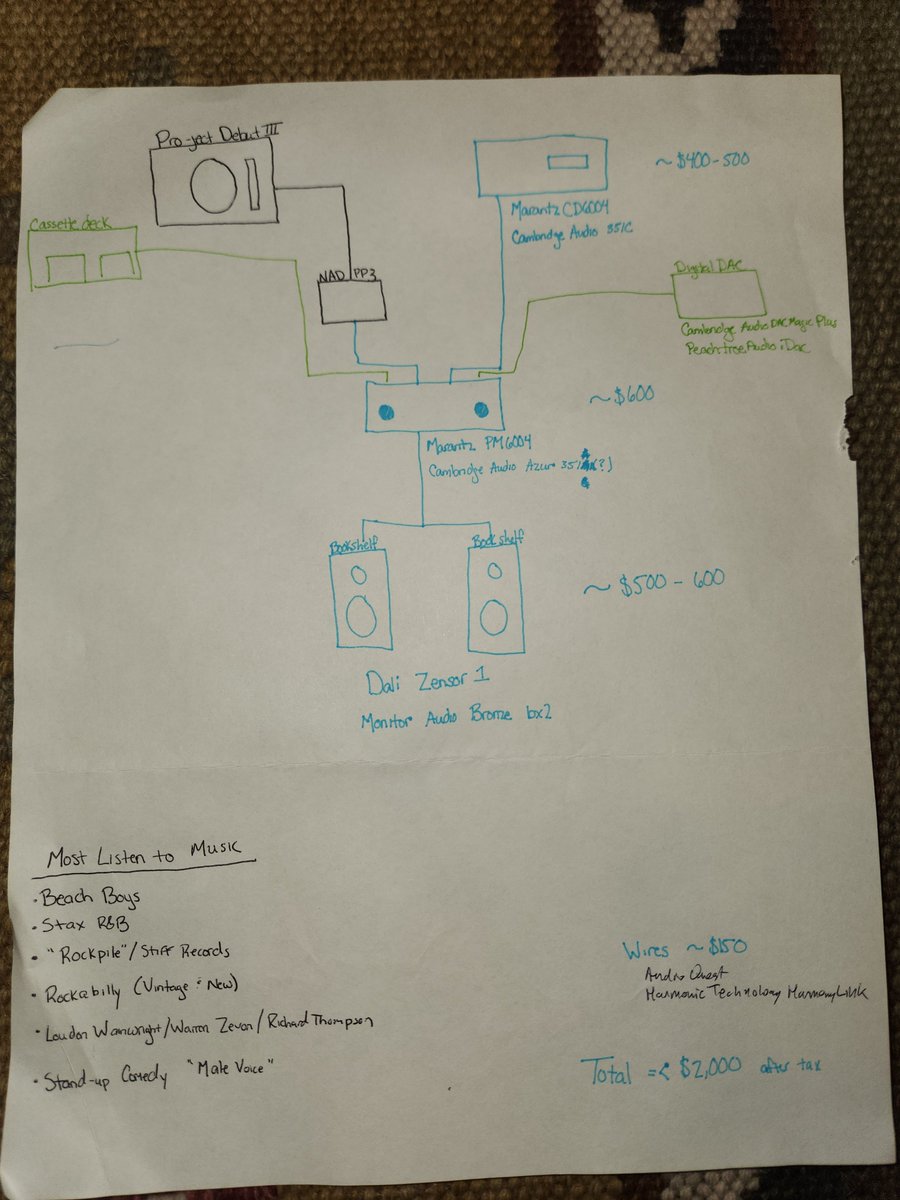 Pro-ject Debut III
~ $400-500
Cassette deck
Marantz CD6004
Cambridge Audio 351C
NAD PP3
Digital DAC
Cambridge Audio DAC Magic Plus
Peachtree Audio iDac
~ $600
Marantz PM6004
Cambridge Audio Azur 351 (?)
Bookshelf
Bookshelf
~ $500 - 600
Dali Zensor 1
Monitor Audio Bronze bx2
Most Listen to Music
• Beach Boys
• Stax R&B
• "Rockpile" / Stiff Records
• Rockabilly (Vintage + New)
• Loudon Wainwright / Warren Zevon / Richard Thompson
• Stand-up Comedy "Male Voice"
Wires ~ $150
Audio Quest
Harmonic Technology Harmony Link
Total =< $2,000 after tax